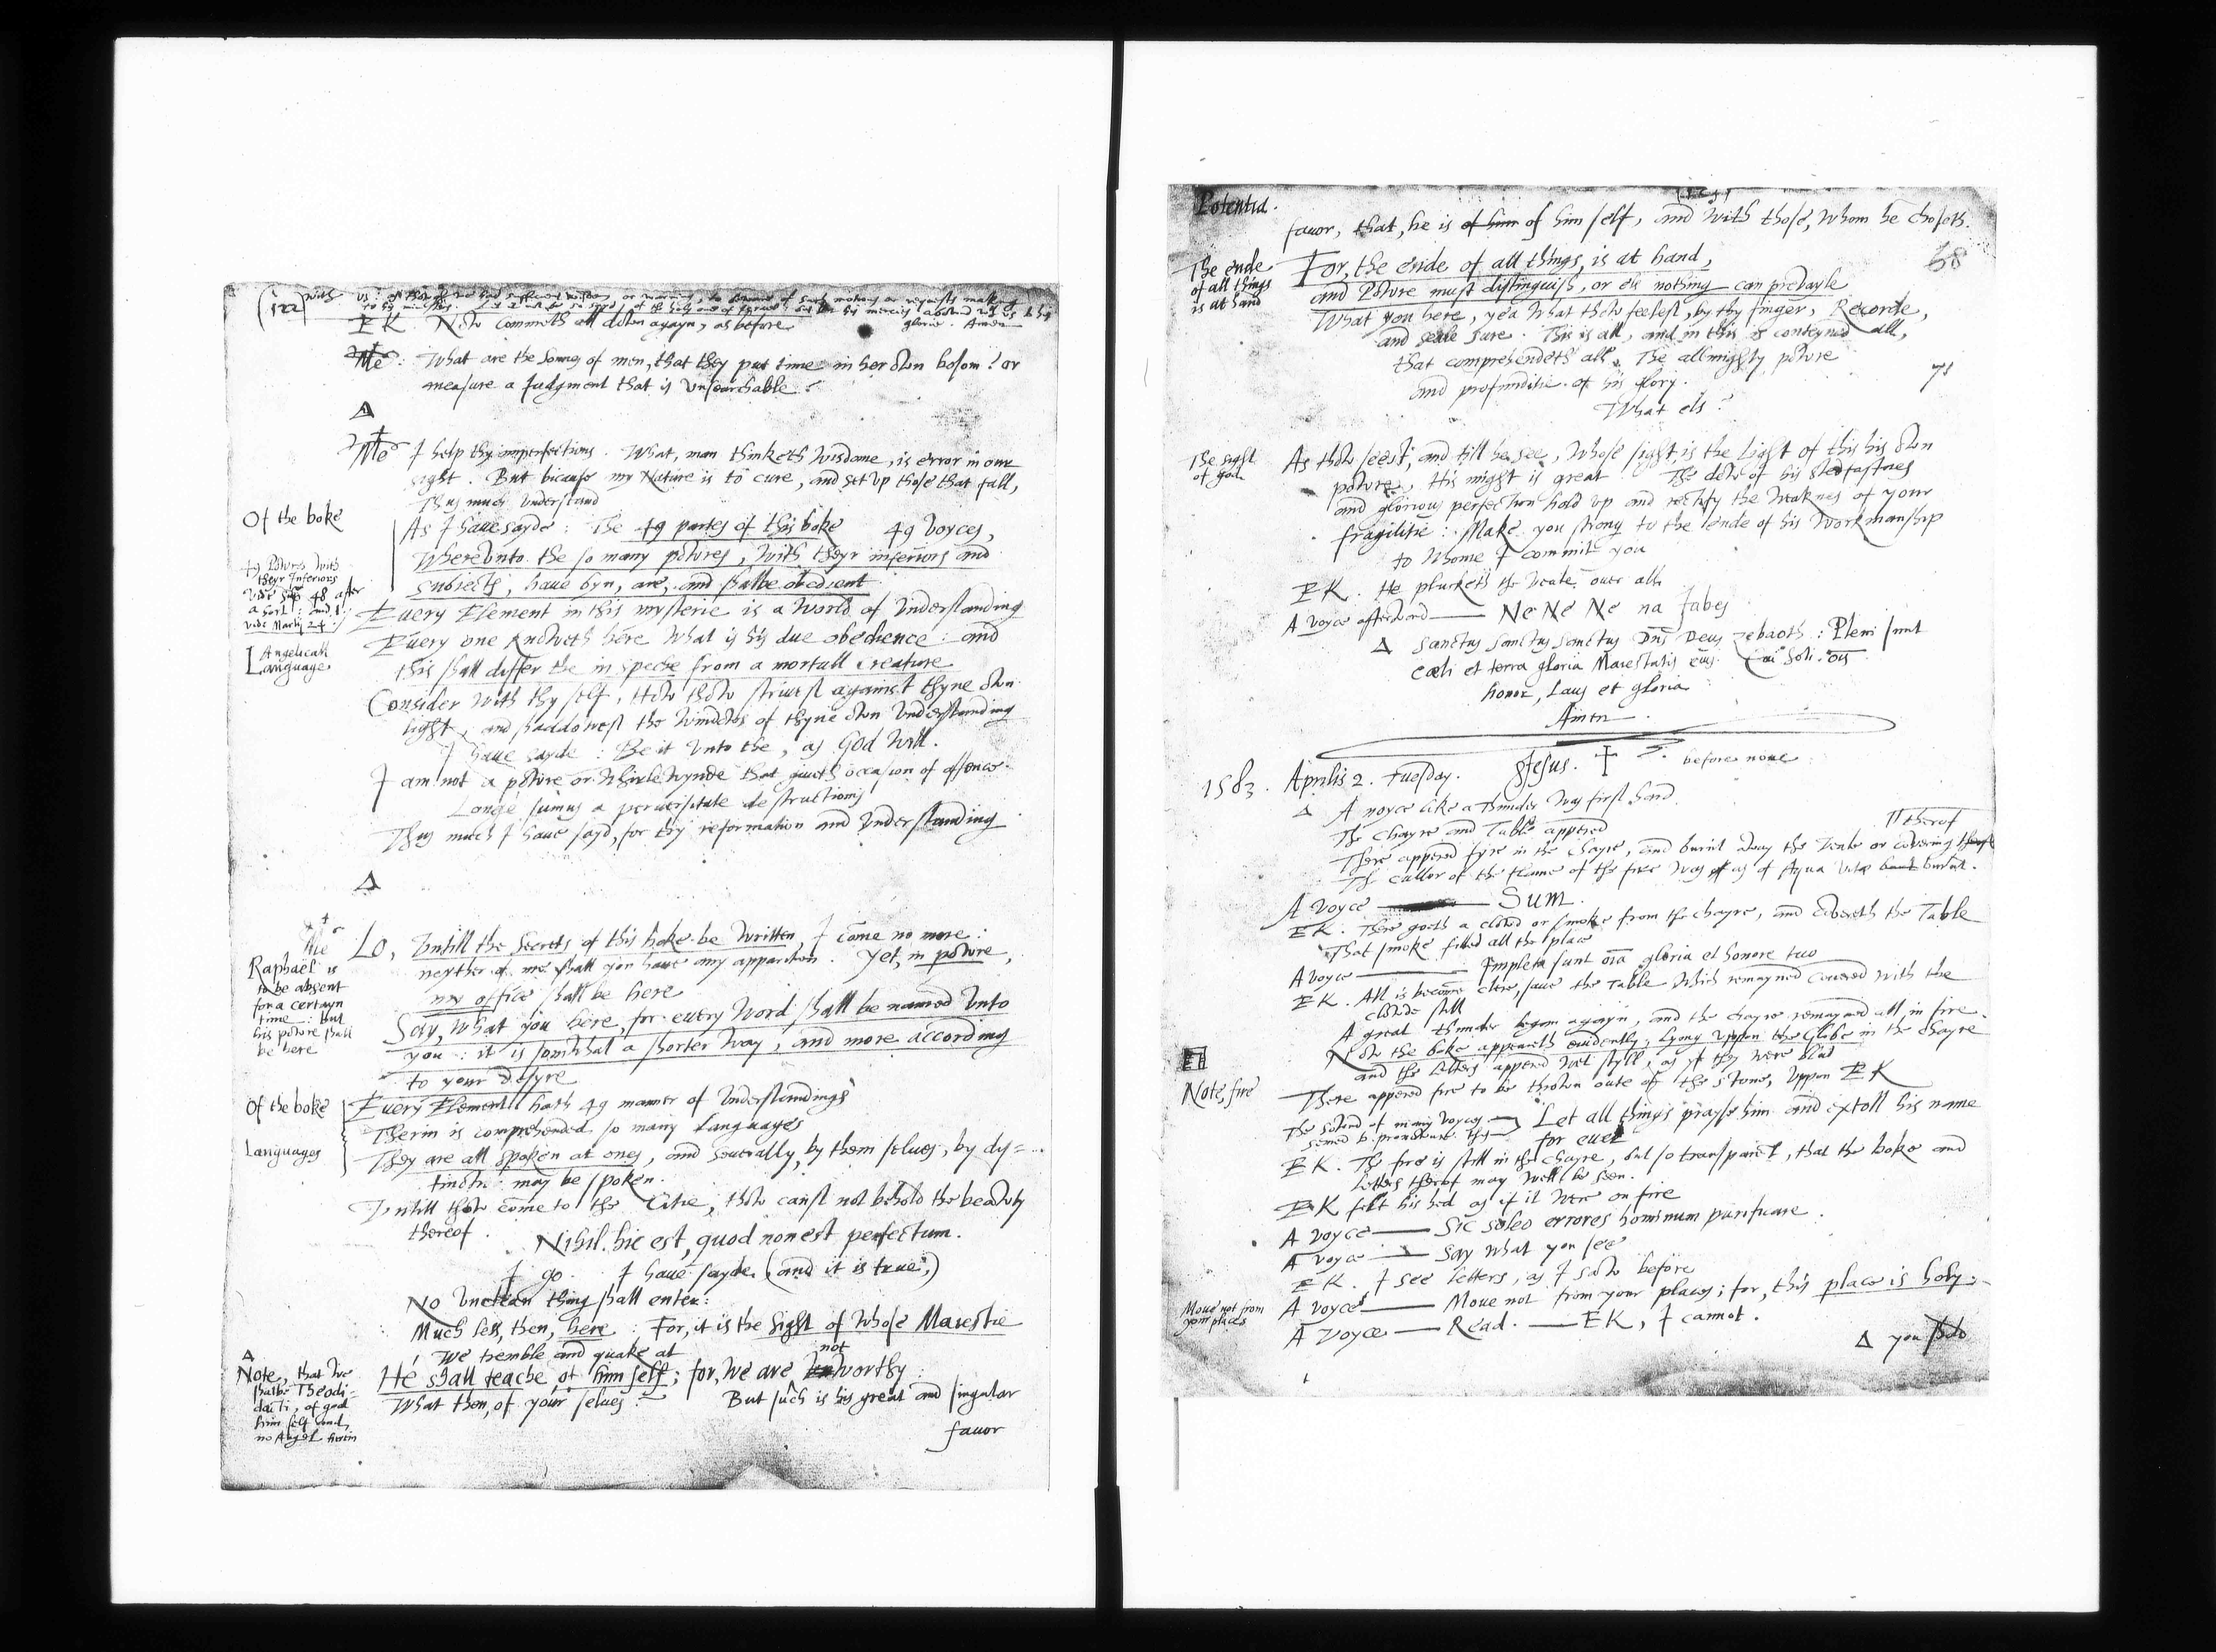 with us:
E K. Now commeth all down agayn, as before
glorie. Amen
Me: What are the Sonnes of men, that they put time in her own bosom? or
measure a Judgment that is vnsearchable?
Δ
Me I help thy imperfections. What, man thinketh wisdome, is error in our
sight. But bicause my Nature is to cure, and set vp those that fall,
Thus much vnderstand
Of the boke
As I haue sayde: The 49 partes of this boke 49 voyces,
Wherevnto the so many powres, with theyr inferiors and
subiects, haue byn, are, and shalbe obedient.
49 Powres with
theyr Inferiors
vide sup 48 after
a sort: and 1:
vide Martij 24
Euery Element in this mysterie is a world of vnderstanding
Euery one knoweth here what is his due obedience: and
this shall differ the in speche from a mortall creature
Angelicall
Language
Consider with thy self, How thow striuest against thyne own
light, and shaddowest the windowes of thyne own vnderstanding
I haue sayde: Be it vnto the, as God will.
I am not a powre or whirlewynde that giueth occasion of offence
Longe sumus a peruersitate destructionis
Thus much I haue sayd, for thy reformation and vnderstanding
Δ
Me Lo, vntill the Secrets of this boke be written, I come no more:
neyther of me shall you haue any apparition. Yet, in powre,
my office shall be here
Raphael is
to be absent
for a certayn
time: but
his powre shall
be here
Say, what you here, for euery word shall be named vnto
you: it is somwhat a shorter way, and more according
to your desyre
Of the boke
Euery Element hath 49 manner of vnderstandings
Therin is comprehended so many languages
Languages
They are all spoken at ones, and seuerally, by them selues, by dy=
stinction may be spoken.
Vntill thow come to the Citie, thow canst not behold the beawty
thereof.
Nihil hic est, quod non est perfectum.
I go. I haue sayde, (and it is true,)
No vnclean thing shall enter:
Much less, then, here: For, it is the Sight of whose Maiestie
We tremble and quake at
Δ
Note, that we
shalbe Theodi=
dacti, of god
him self and
no Angel herin
He shall teache, of him self; for, we are not worthy
What then, of your selues? But such is his great and singular
fauor
Potentia.
fauor, that, he is of him of him self, and with those, whom he choseth.
68
The ende
of all things
is at hand
For, the ende of all things, is at hand,
and Powre must distinguish, or els nothing can preuayle
What you here, yea what thow feelest, by thy finger, Recorde,
and seale sure. This is all, and in this is conteyned all,
that comprehendeth all. The allmighty powre
and profunditie of his glory.
71
What els?
The sight
of god
As thow seest, and till he see, whose sight, is the Light of this his own
powre. His might is great. The dew of his stedfastnes
and glorious perfection hold vp and rectify the weaknes of your
fragilitie: Make you strong to the ende of his workmanship
to whome I commit you
E K. He plucketh the veale ouer all
A voyce afterward — Ne Ne Ne na Jabes
Δ Sanctus Sanctus Sanctus Dns Deus Zebaoth: Pleni sunt
cæli et terra gloria Maiestatis eius. Cui soli ois
honor, Laus et gloria
Amen.
1583. Aprilis 2. Tuesday. Jesus. + before none
Δ A voyce like a Thunder was first hard
The Chayre and Table appered
There appered fyre in the chayre, and burnt away the veale or covering therof
The cullor of the flame of the fire was as of Aqua vitæ burnt.
A voyce — SUM.
E K. There goeth a clowd or smoke from the chayre, and covereth the Table
That smoke filled all the place
A voyce — Impleta sunt oia gloria et honore tuo
E K. All is become clere, saue the Table which remayned couered with the
clowde still
A great thunder began agayn, and the chayre remayned all in fire.
Now the boke appeareth euidently, lying vppon the Globe in the chayre
and the letters appered wet styll, as yf they were blud
Note, fire
There appered fire to be throwen oute of the stone, vppon E K
The sownd of many voyces
semed to pronownce this Let all things prayse him and extoll his name
for euer
E K. The fire is still in the chayre, but so transparent, that the boke and
letters therof may well be seen.
E K felt his hed as if it were on fire
A voyce — Sic soleo errores hominum purificare.
A voyce — Say what you see
E K. I see letters, as I saw before
Moue not from
your places
A voyce — Moue not from your places; for, this place is holy.
A voyce — Read. — E K, I cannot.
Δ you shold